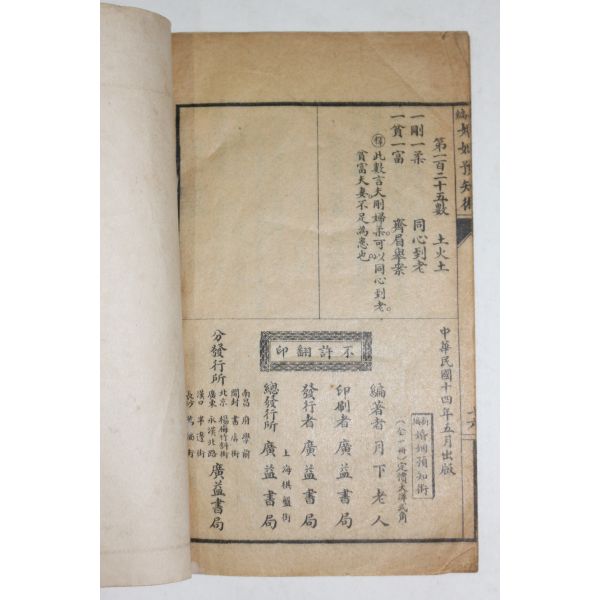 編婚姻預知術
第一百二十五數　土火土
一剛一柔　同心到老
一貧一富　齊眉舉案
釋此數言夫剛婦柔。可以同心到老。
貧富夫妻。不足為患也。
中華民國十四年五月出版
新編
婚姻預知術
(全一冊)定價大洋弍角
不許翻印
編著者月下老人
印刷者廣益書局
發行者廣益書局
上海棋盤街
總發行所廣益書局
分發行所
南昌府學前
開封書店街
北京楊梅竹斜街
廣東永漢北路
漢口半邊街
長沙
廣益書局